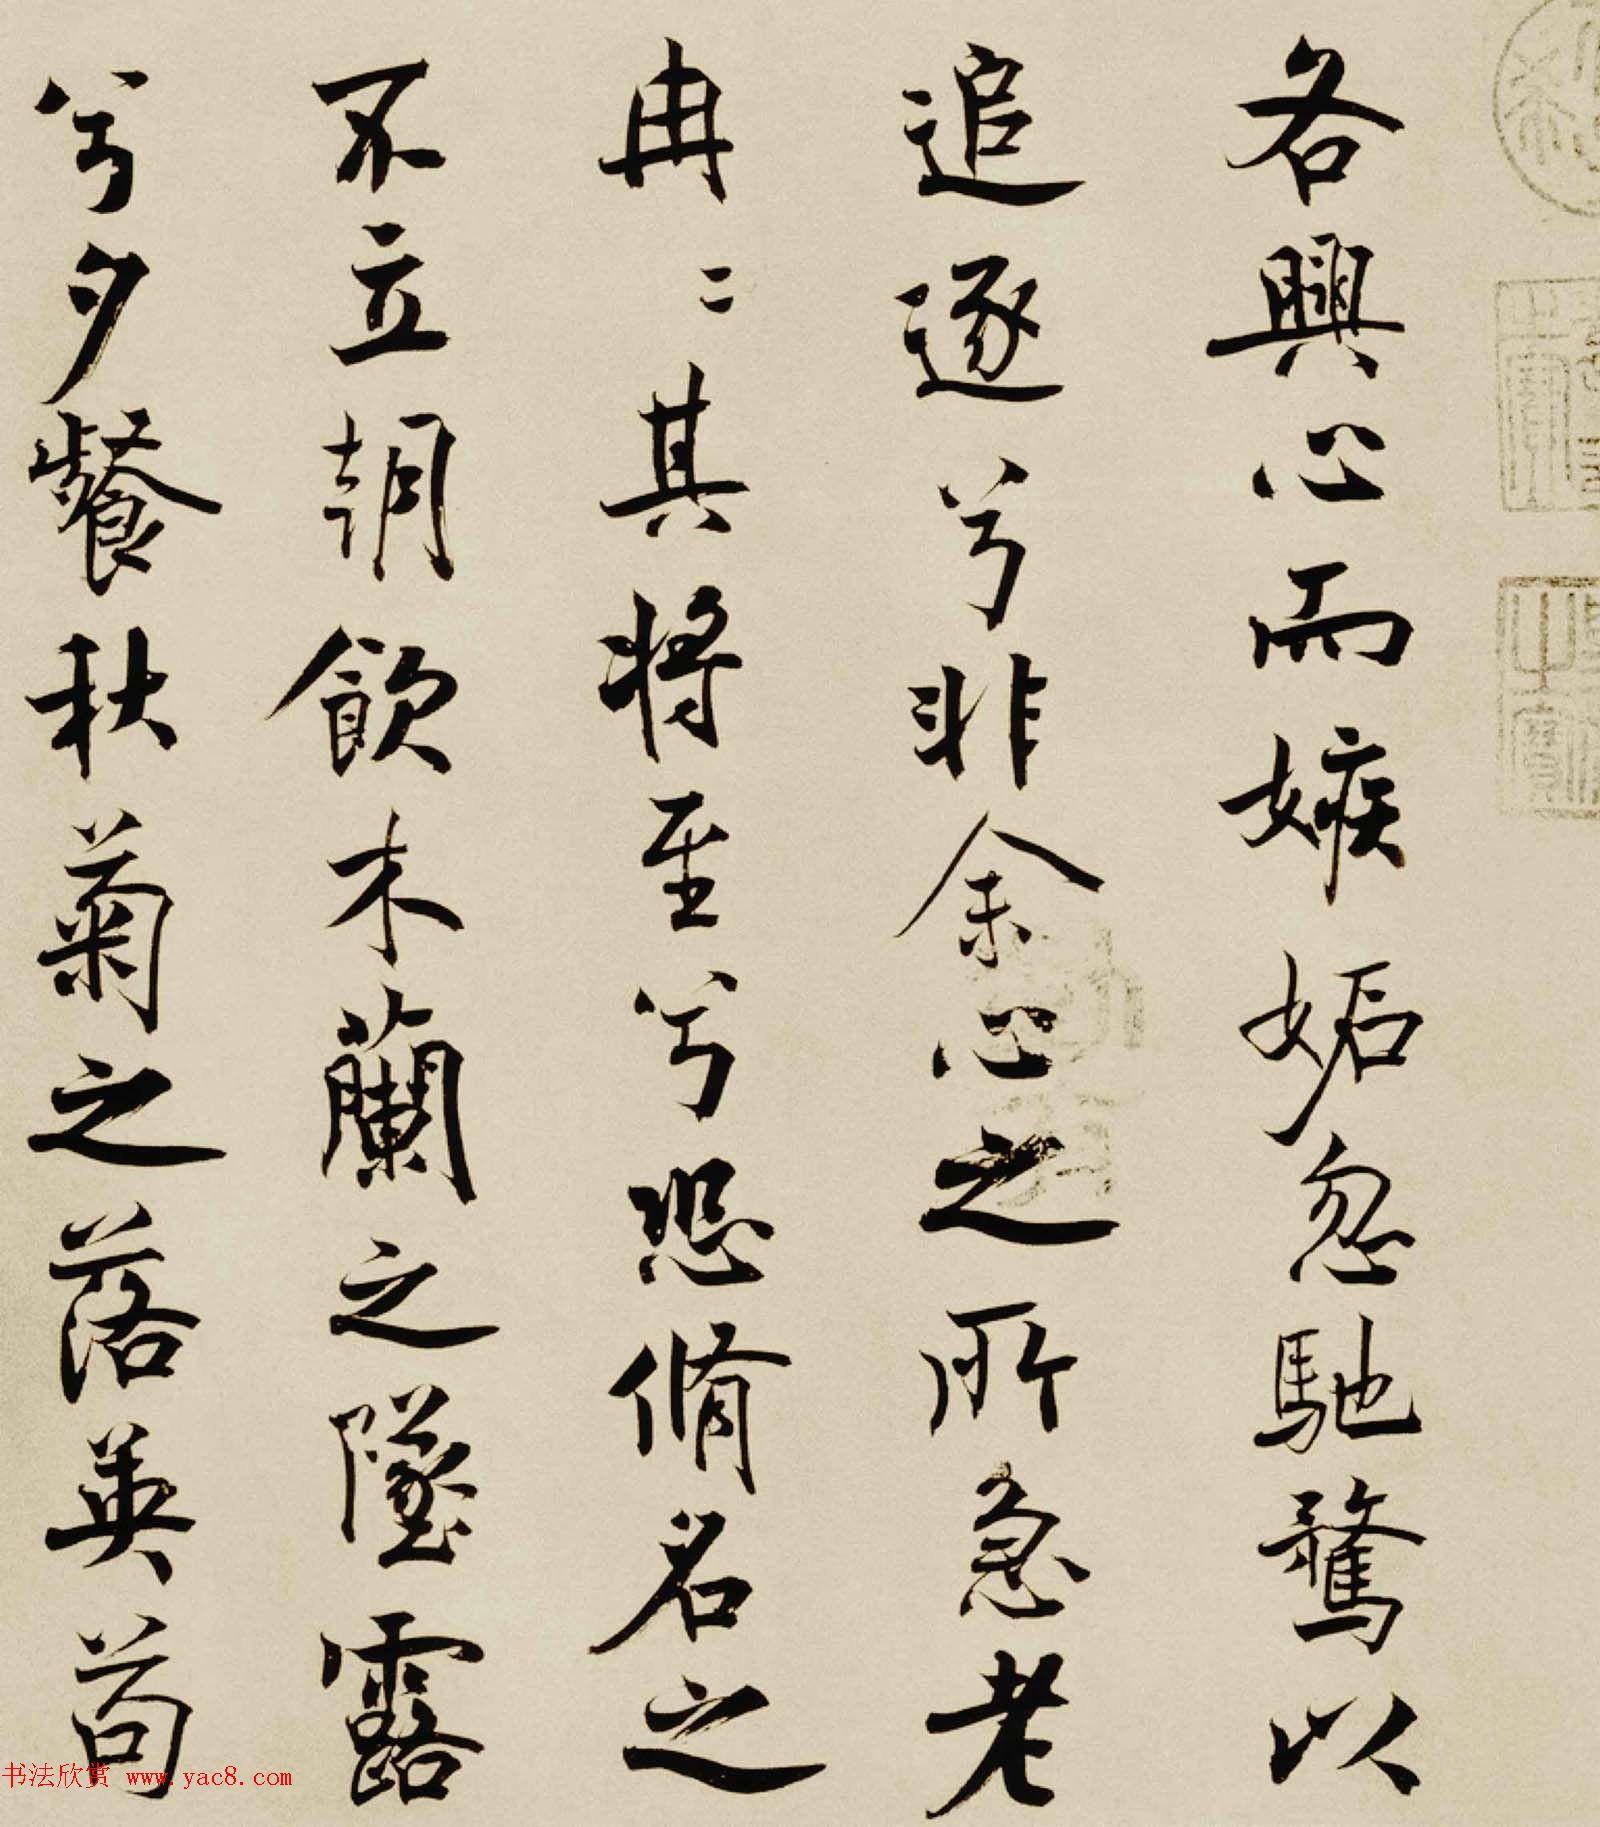 各興心而嫉妬忽馳騖以
追逐兮非余心之所急老
冉〻其將至兮恐脩名之
不立朝飲木蘭之墜露
兮夕餐秋菊之落英苟
书法欣赏 www.yac8.com